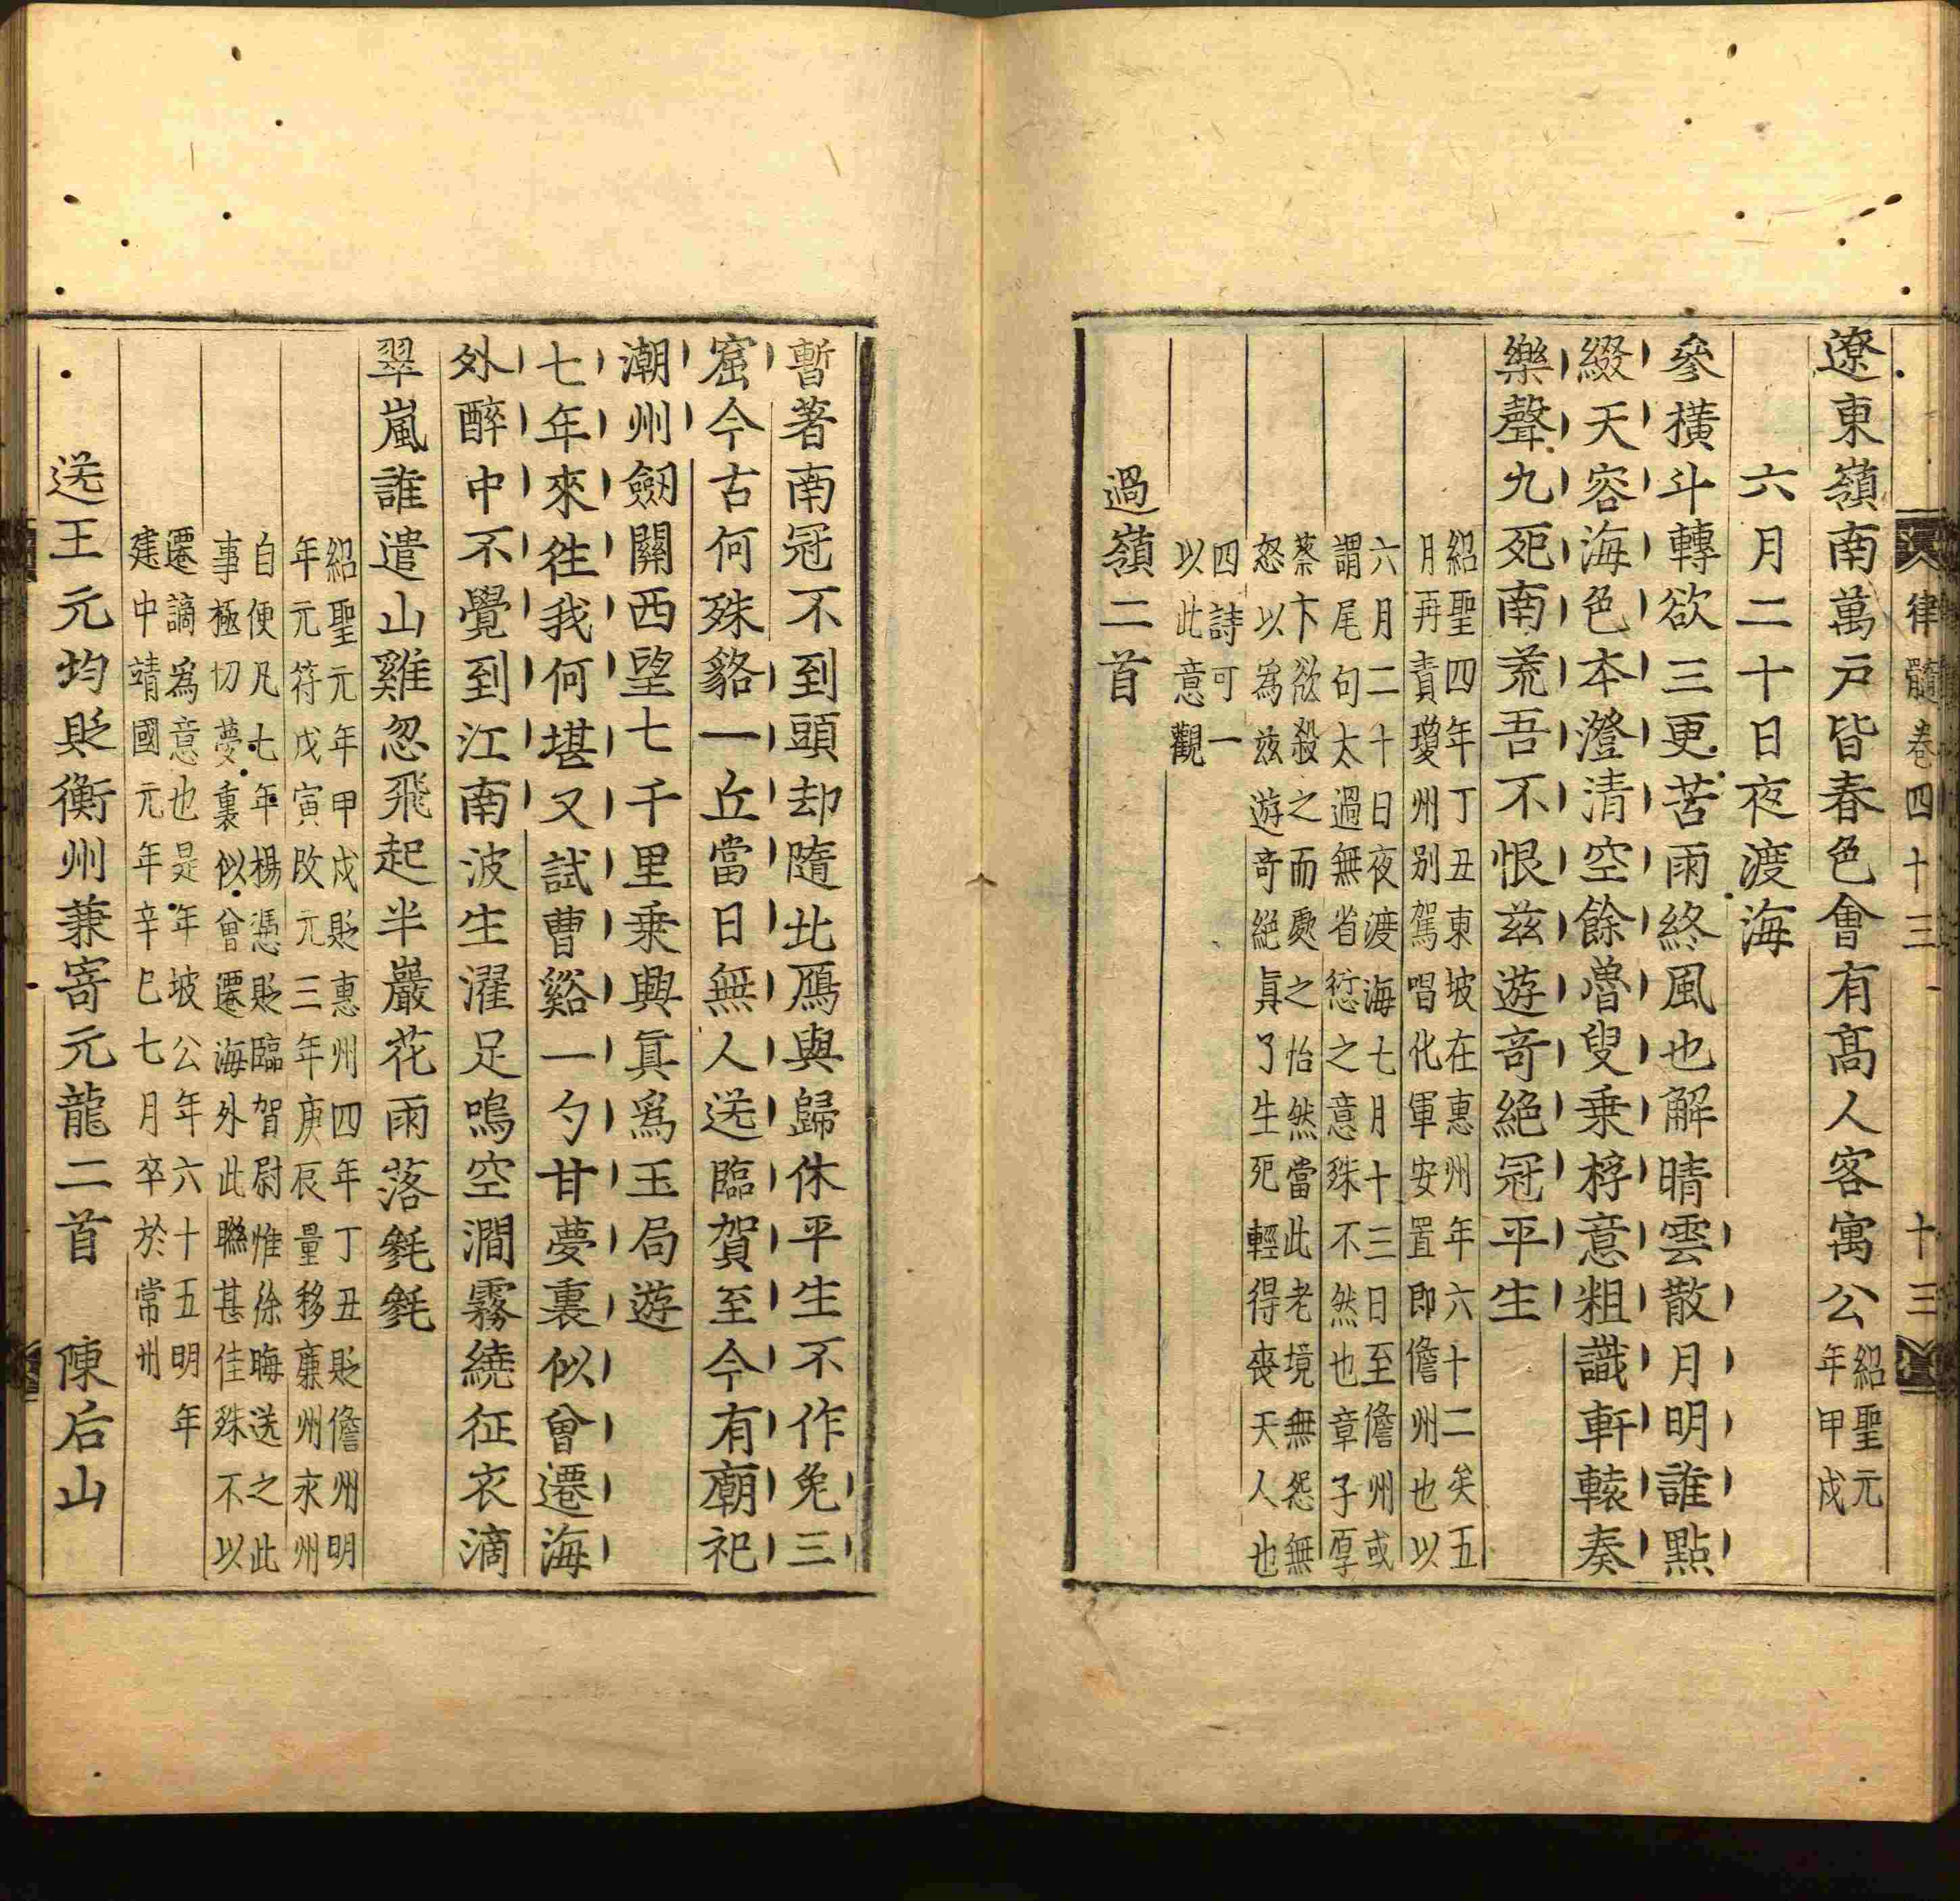 律髓卷四十三　十三
遼東嶺南萬戶皆春色會有高人客寓公紹聖元
年甲戌
六月二十日夜渡海
參橫斗轉欲三更苦雨終風也解晴雲散月明誰點
綴天容海色本澄清空餘魯叟乗桴意粗識軒轅奏
樂聲九死南荒吾不恨玆遊奇絶冠平生
紹聖四年丁丑東坡在惠州年六十二矣五
月再責瓊州别駕唱化軍安置即儋州也以
六月二十日夜渡海七月十三日至儋州或
謂尾句太過無省愆之意殊不然也章子厚
蔡卞欲殺之而處之怡然當此老境無怨無
怒以為玆遊奇絶眞了生死輕得喪天人也
四詩可一
以此意觀
過嶺二首
暫著南冠不到頭却隨北鴈與歸休平生不作兔三
窟今古何殊貉一丘當日無人送臨賀至今有廟祀
潮州劒關西望七千里乗興眞爲玉局遊
七年來徃我何堪又試曹谿一勺甘夢裏似曾遷海
外醉中不覺到江南波生濯足鳴空澗霧繞征衣滴
翠嵐誰遣山雞忽飛起半巖花雨落毿毿
紹聖元年甲戌貶惠州四年丁丑貶儋州明
年元符戊寅改元三年庚辰量移廉州永州
自便凡七年楊憑貶臨賀尉惟徐晦送之此
事極切夢裏似曾遷海外此聯甚佳殊不以
遷謫爲意也是年坡公年六十五明年
建中靖國元年辛巳七月卒於常州
送王元均貶衡州兼寄元龍二首　陳后山